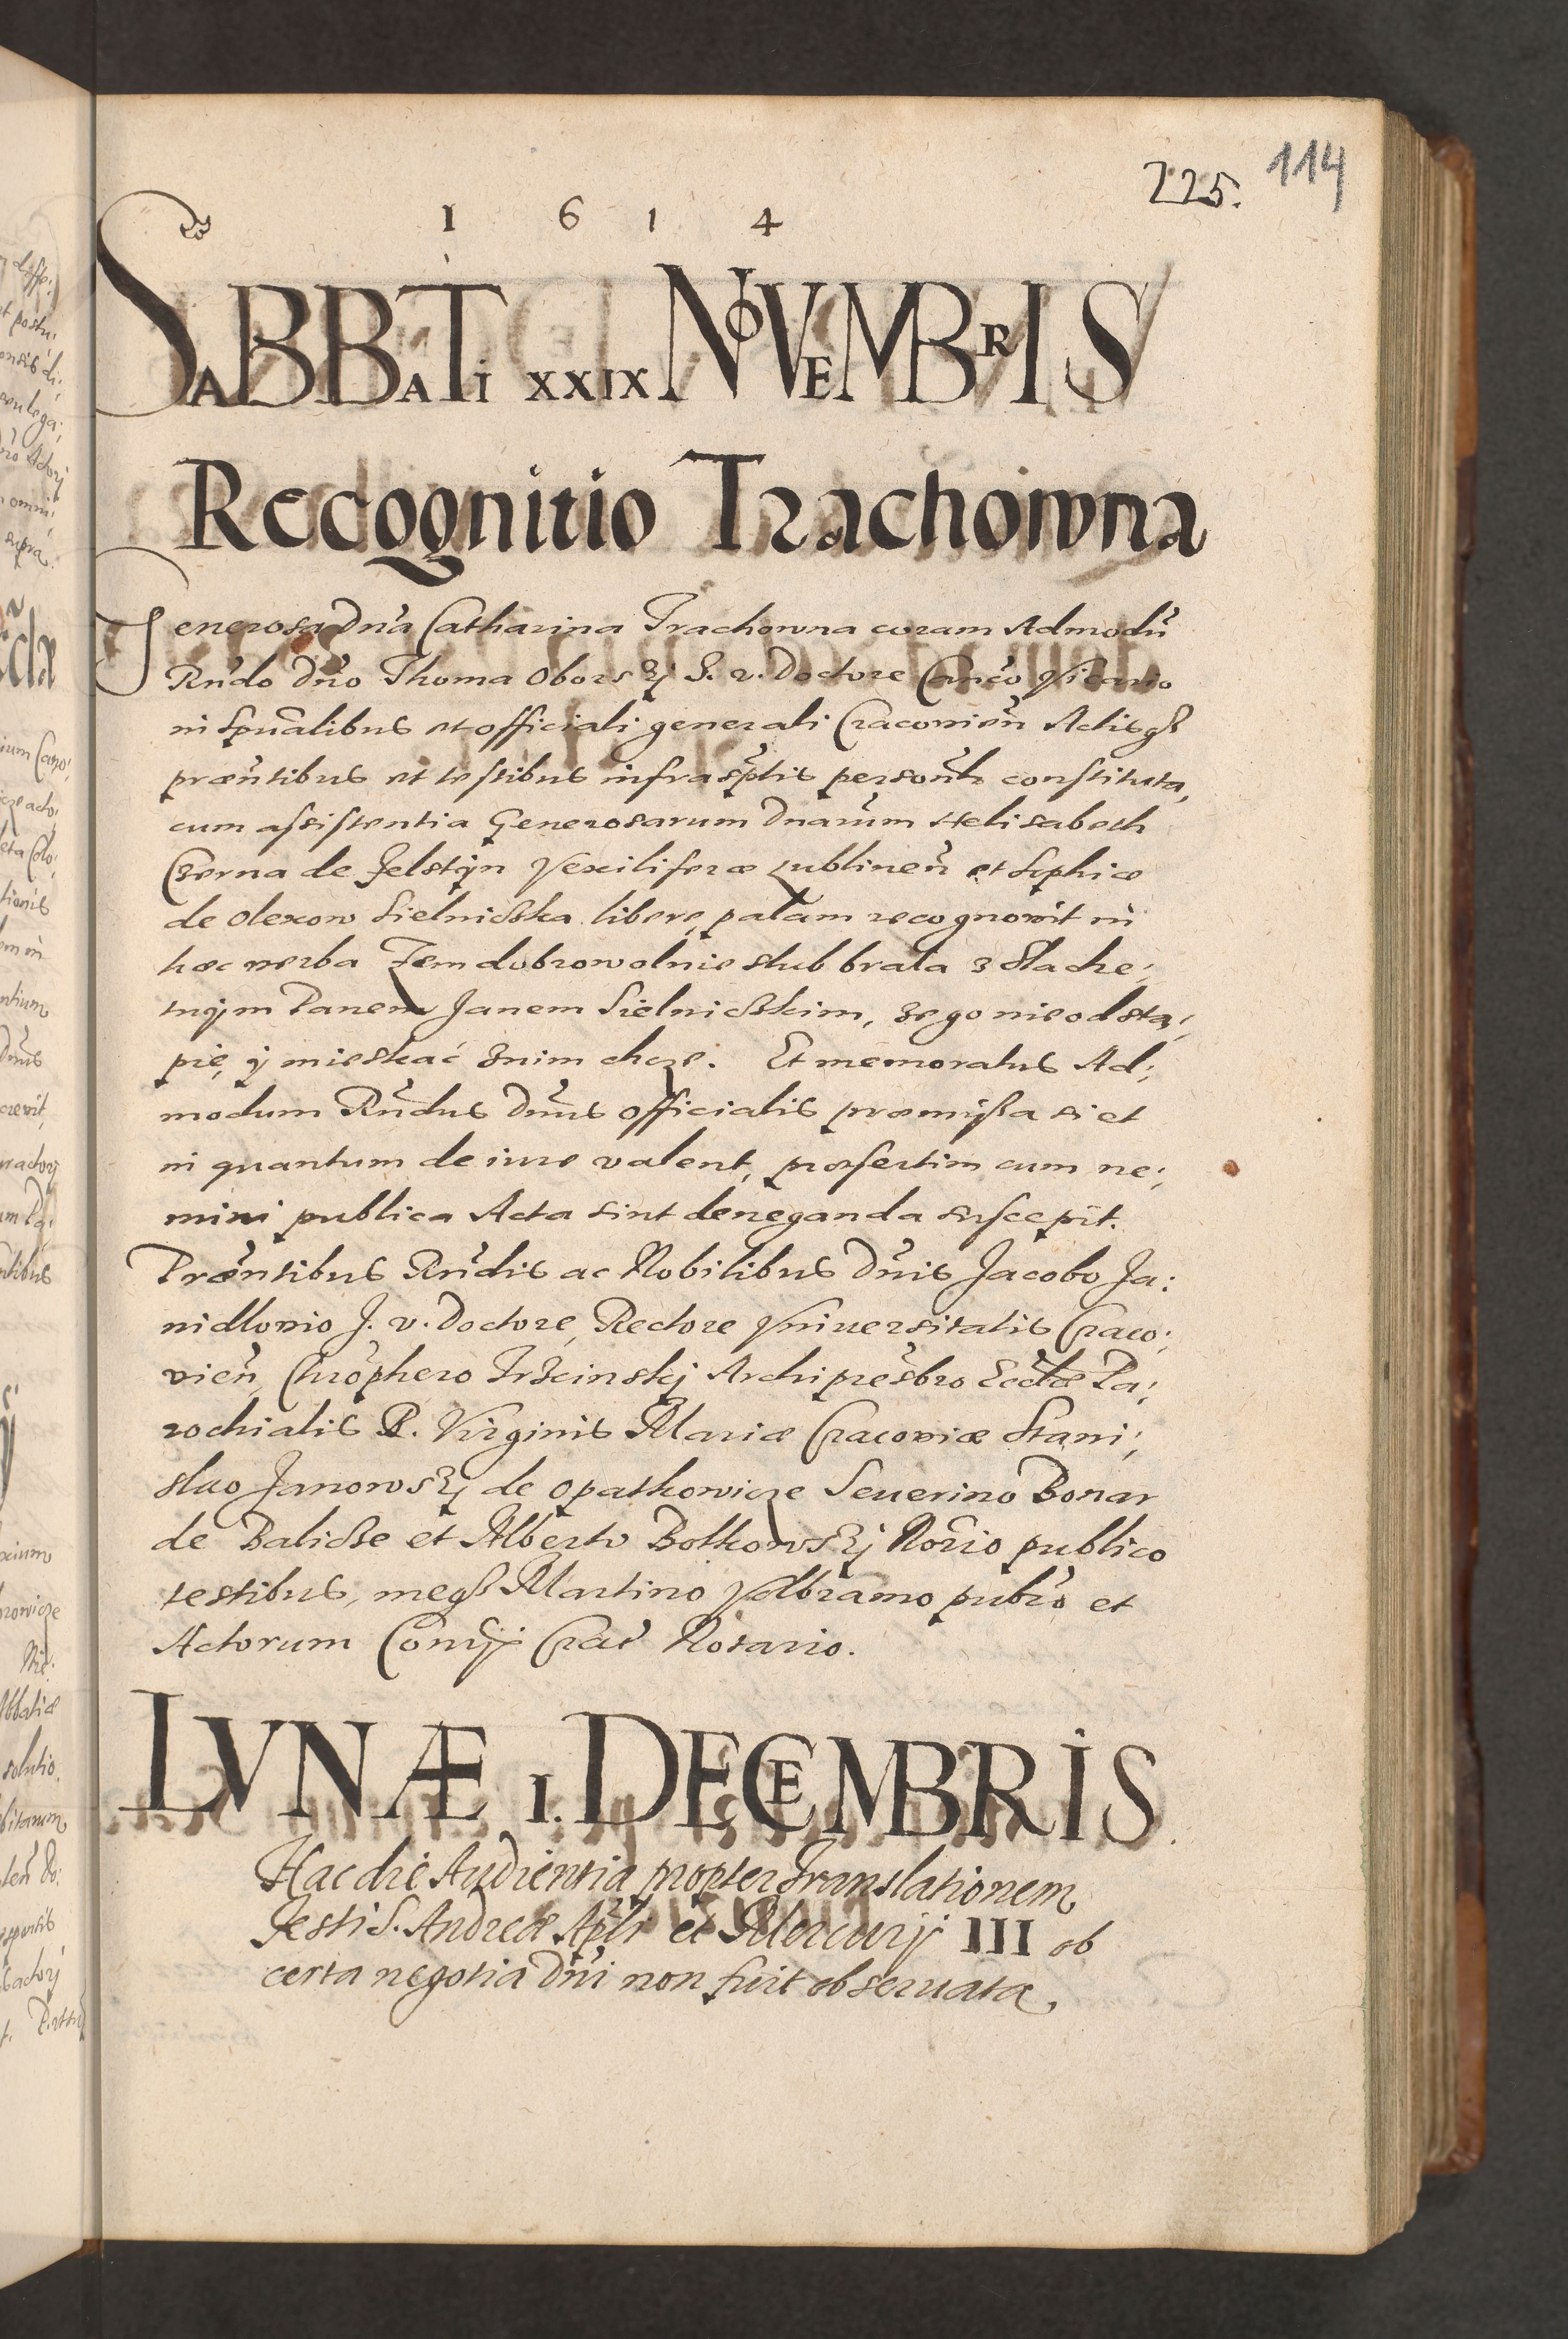 225. 114
1 6 1 4
SABBATI XXIX NOVEMBRIS
Recognitio Trachowna
Generosa Dna Catharina Trachowna coram Admodu
Rndo Dno Thoma Oborskj S. v. Doctore Canco Vicario
in Spualibus et officiali generali Cracovien Actisqз
præntibus et testibus infrasptis personlr constituta,
cum assistentia Generosarum Dnarum Helisabeth
Czerna de Felstÿn Vexiliferæ Lublinen et Sophiæ
de Olexow Sielnicßka libere, palam recognovit in
hæc verba Żem dobrowolnie slub brała z Slache;
tnÿm Panem Janem Sielnicßkim, że go nie odstą;
pię, ÿ mieskać znim chcze. Et memoratus Ad;
modum Rndus Dnus officialis præmißa si et
in quantum de iure valent, præsertim cum ne;
mini publica Acta sint deneganda suscepit.
Præntibus Rndis ac Nobilibus Dnis Jacobo Ja:
nidlovio J. v. Doctore, Rectore Vniuersitatis Craco;
vien, Chrophero Trzcinskj Archipresbro Ecclæ Pa;
rochialis B. Virginis Mariæ Cracoviæ Stani;
slao Janowskj de Opatkowicze Seuerino Bonar
de Balicße et Alberto Bolkowskj Norio publico
testibus, meqз Martino Volbramo pubro et
Actorum Conrÿ Crac Notario.
LVNÆ 1. DECEMBRIS
Hac die Audientia propter Translationem
Festi S. Andreæ Apli et Mercurij III ob
certa negotia Dni non fuit obseruata.